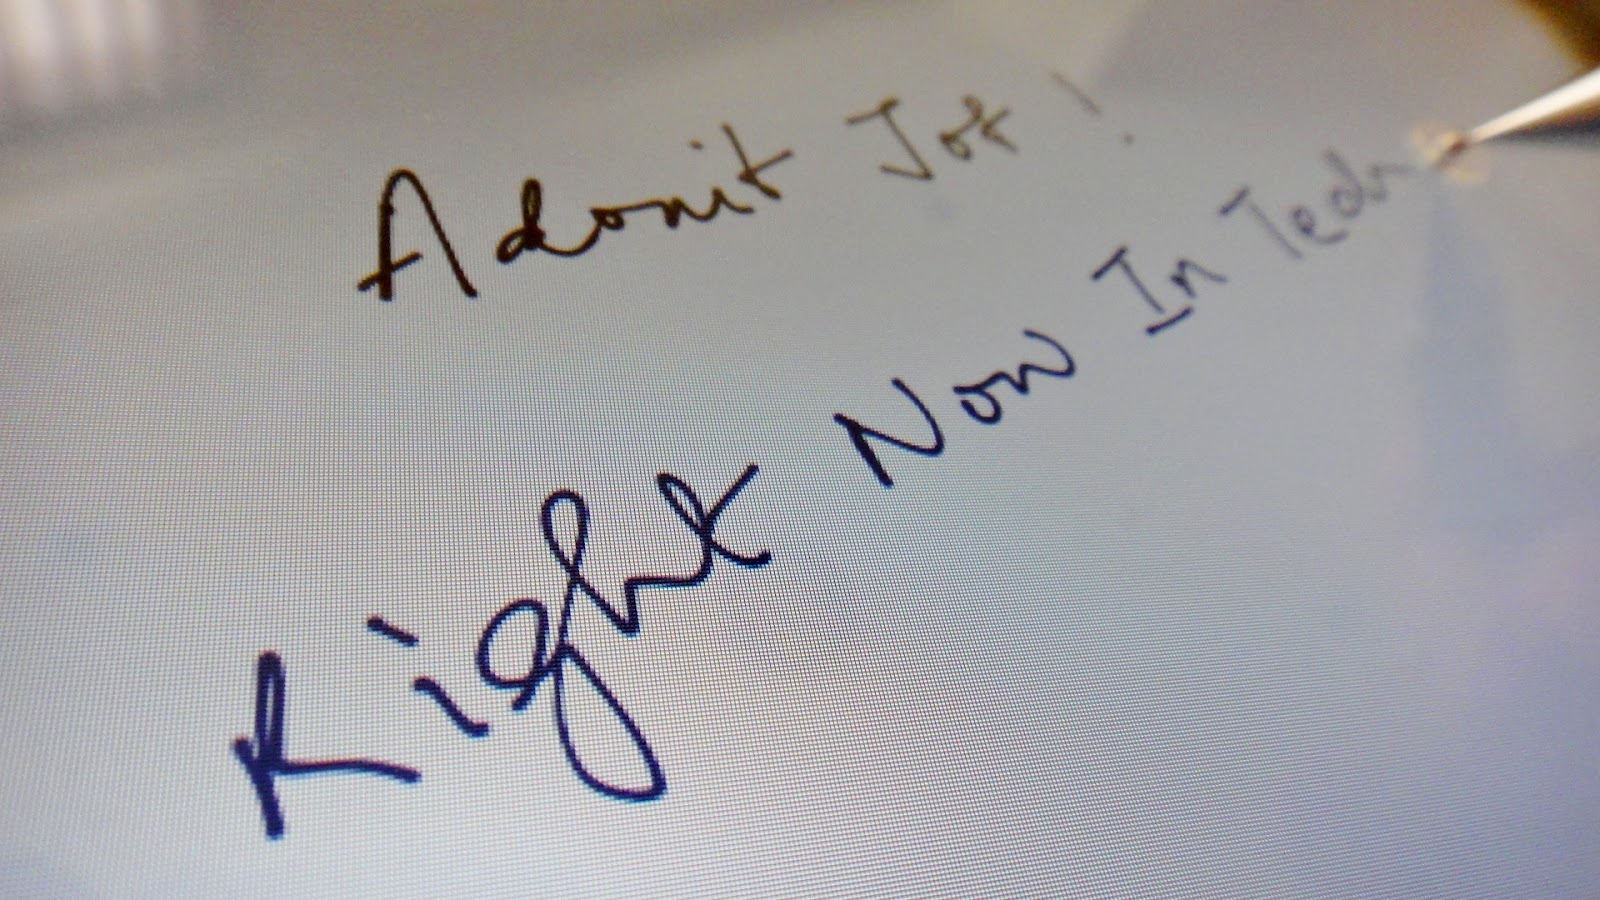 Adonit Jot!
Right Now In Tech